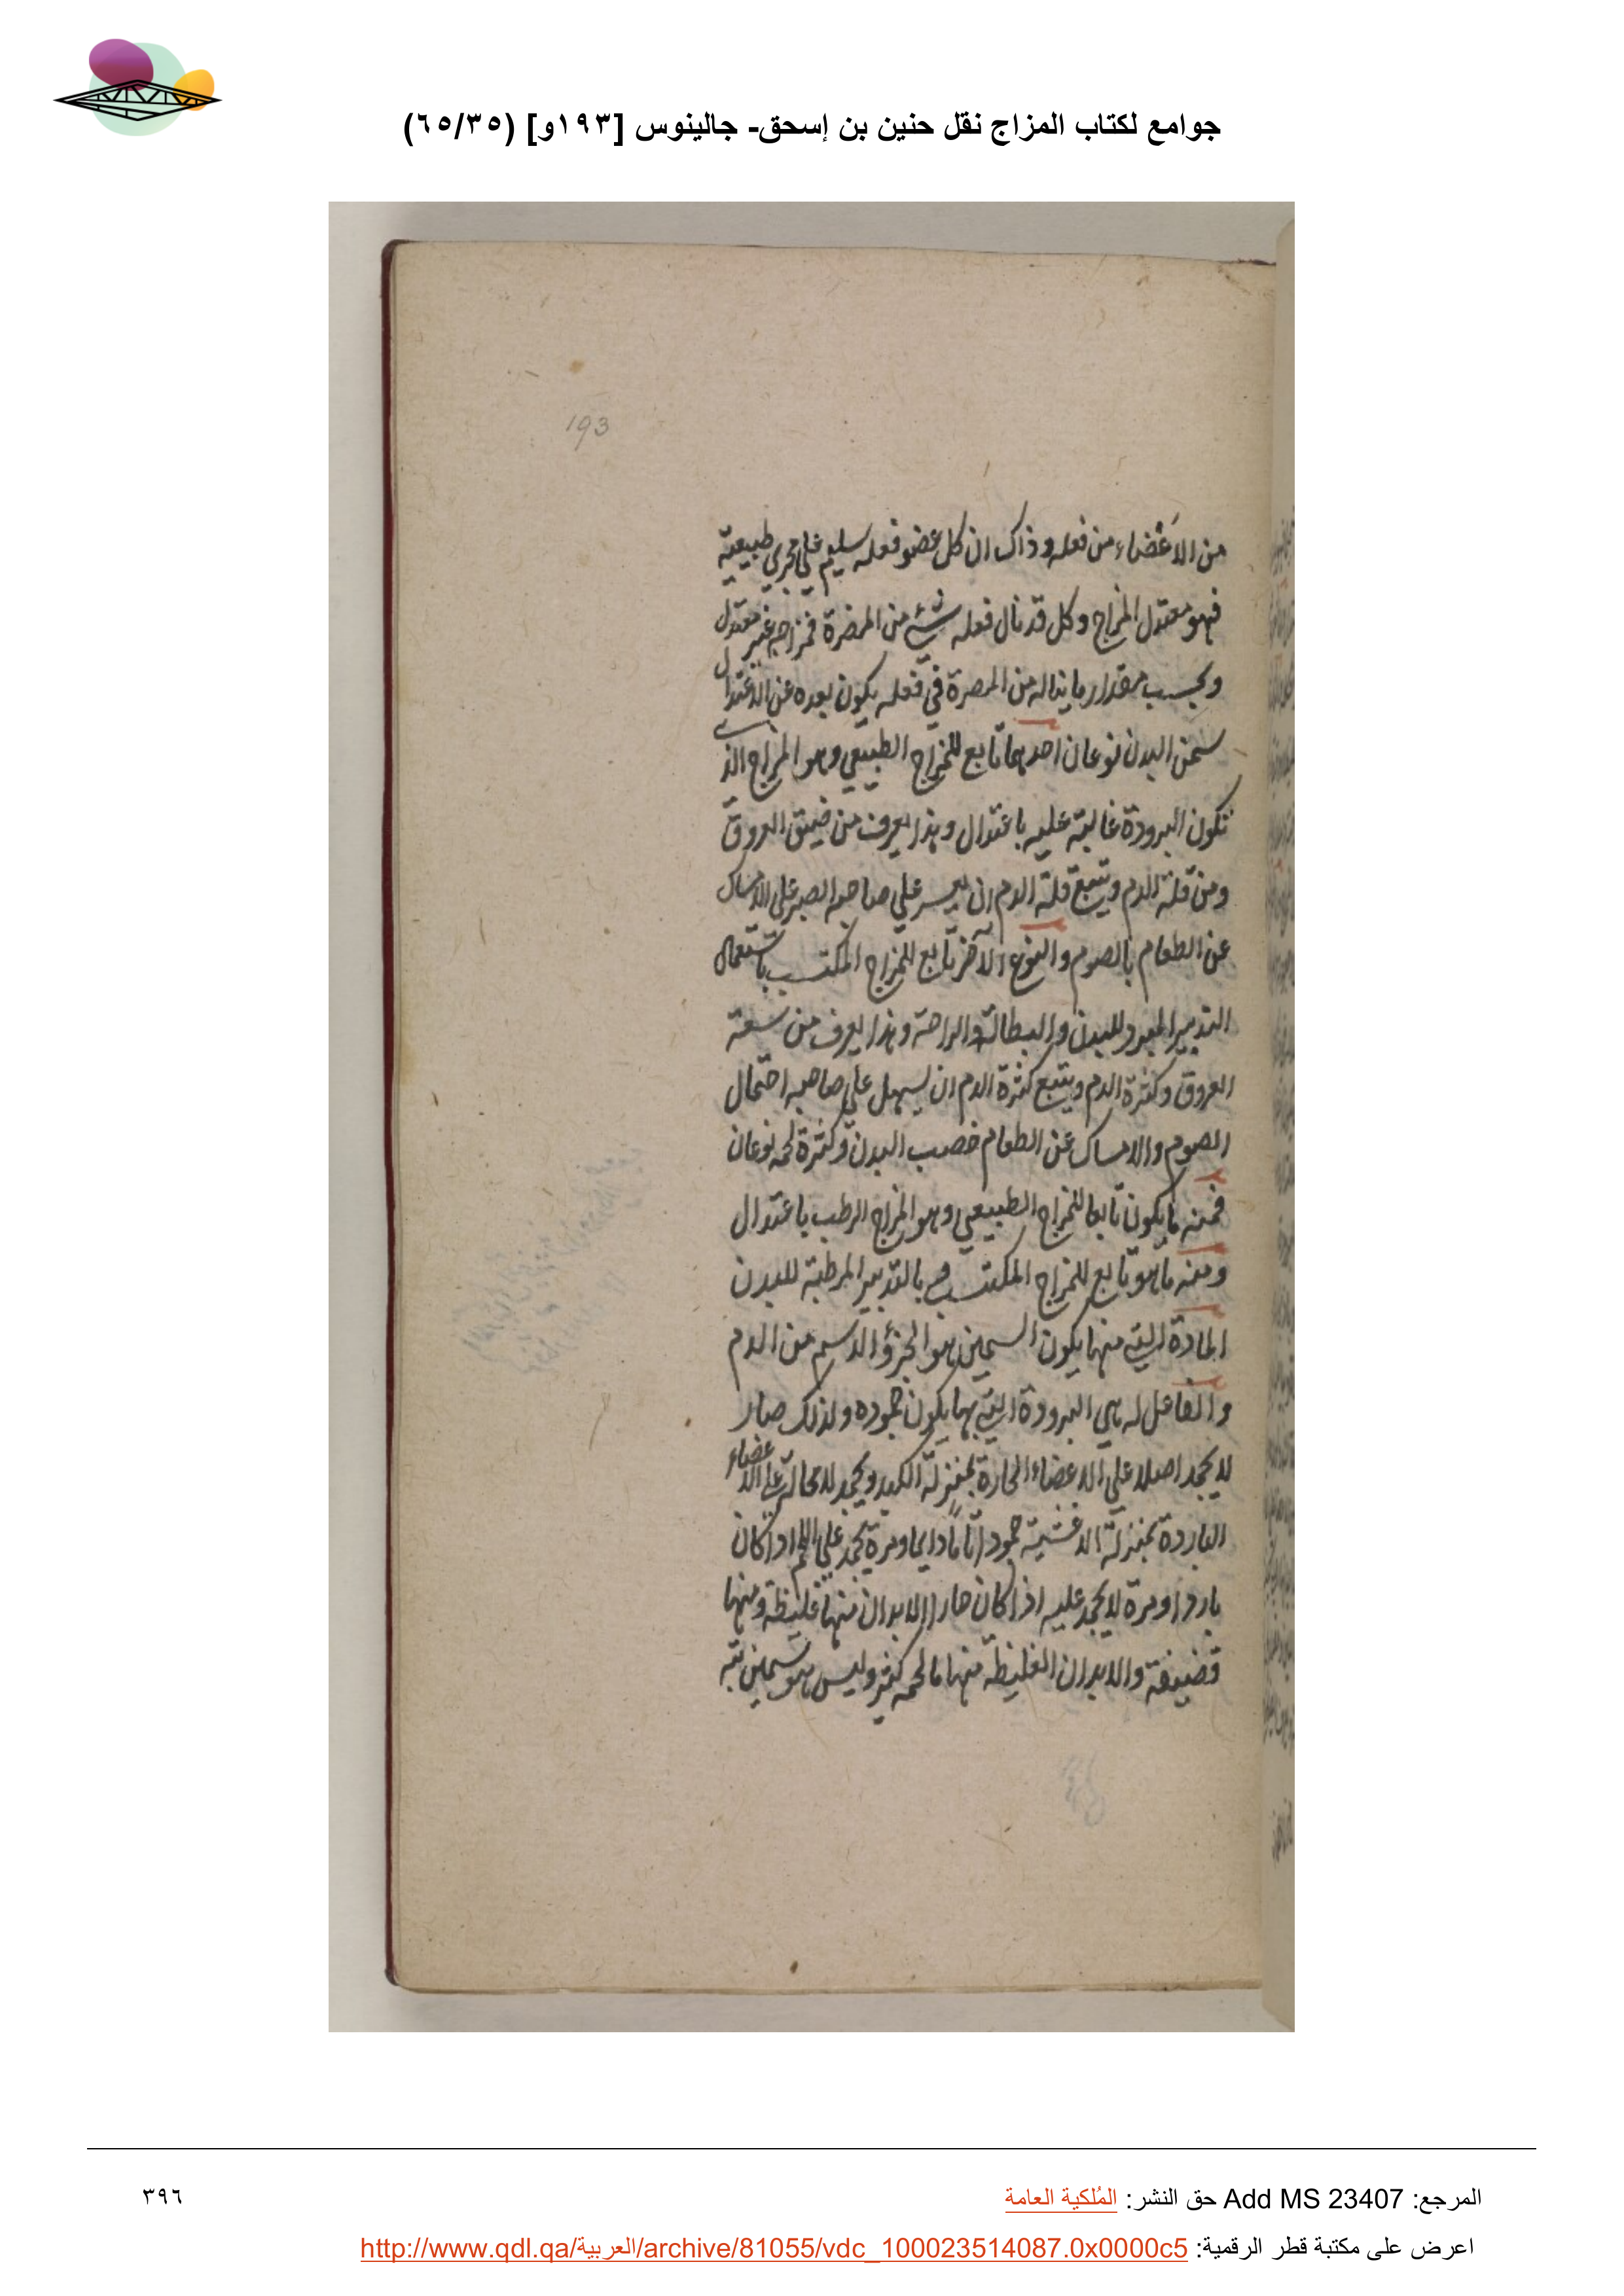 جوامع لكتاب المزاج نقل حنين بن إسحق- جالينوس [١٩٣و] (٦٥/٣٥)
193
من الاعضاء من فعله وذاك ان كل عضو فعله سليم علي مجري طبيعية
فهو معتدل المزاج وكل قد نال فعله شئ من المضرة فمزاجه غير معتدل
وبحسب مقدار ما يناله من المضرة في فعله يكون بعده عن الاعتدال
سمن البدن نوعان احدهما تابع للمزاج الطبيعي وهو المزاج الذي
تكون البرودة غالبة عليه باعتدال وهذا يعرف من ضيق العروق
ومن قلة الدم ويتبع قلة الدم ان يعسر علي صاحبه الصبر علي الامساك
عن الطعام بالصوم والنوع الآخر تابع للمزاج المكتسب باستعمال
التدبير المبرد للبدن والبطالة والراحة وهذا يعرف من سعة
العروق وكثرة الدم ويتبع كثرة الدم ان يسهل علي صاحبه احتمال
الصوم والامساك عن الطعام خصب البدن وكثرة لحمه نوعان
فمنه ما يكون تابعا للمزاج الطبيعي وهو المزاج الرطب باعتدال
ومنه ما هو تابع للمزاج المكتسب بالتدبير المرطبة للبدن
المادة التي منها يكون السمين هو الجزؤ الدسم من الدم
والفاعل له هي البرودة التي بها يكون جموده ولذلك صار
لا يجمد اصلا علي الاعضاء الحارة بمنزلة الكبد ويجمد لا محالة علي الاعضاء
الباردة بمنزلة الاغشية جمودا تاما دايما ومرة يجمد علي اللحم اذا كان
باردا ومرة لا يجمد عليه اذا كان حارا الابدان منها غليظة ومنها
قضيفة والابدان الغليظة منها ما لحمه كثير وليس هو بسمين تبه
المرجع: Add MS 23407 حق النشر: المُلكية العامة
٣٩٦
اعرض على مكتبة قطر الرقمية: http://www.qdl.qa/العربية/archive/81055/vdc_100023514087.0x0000c5